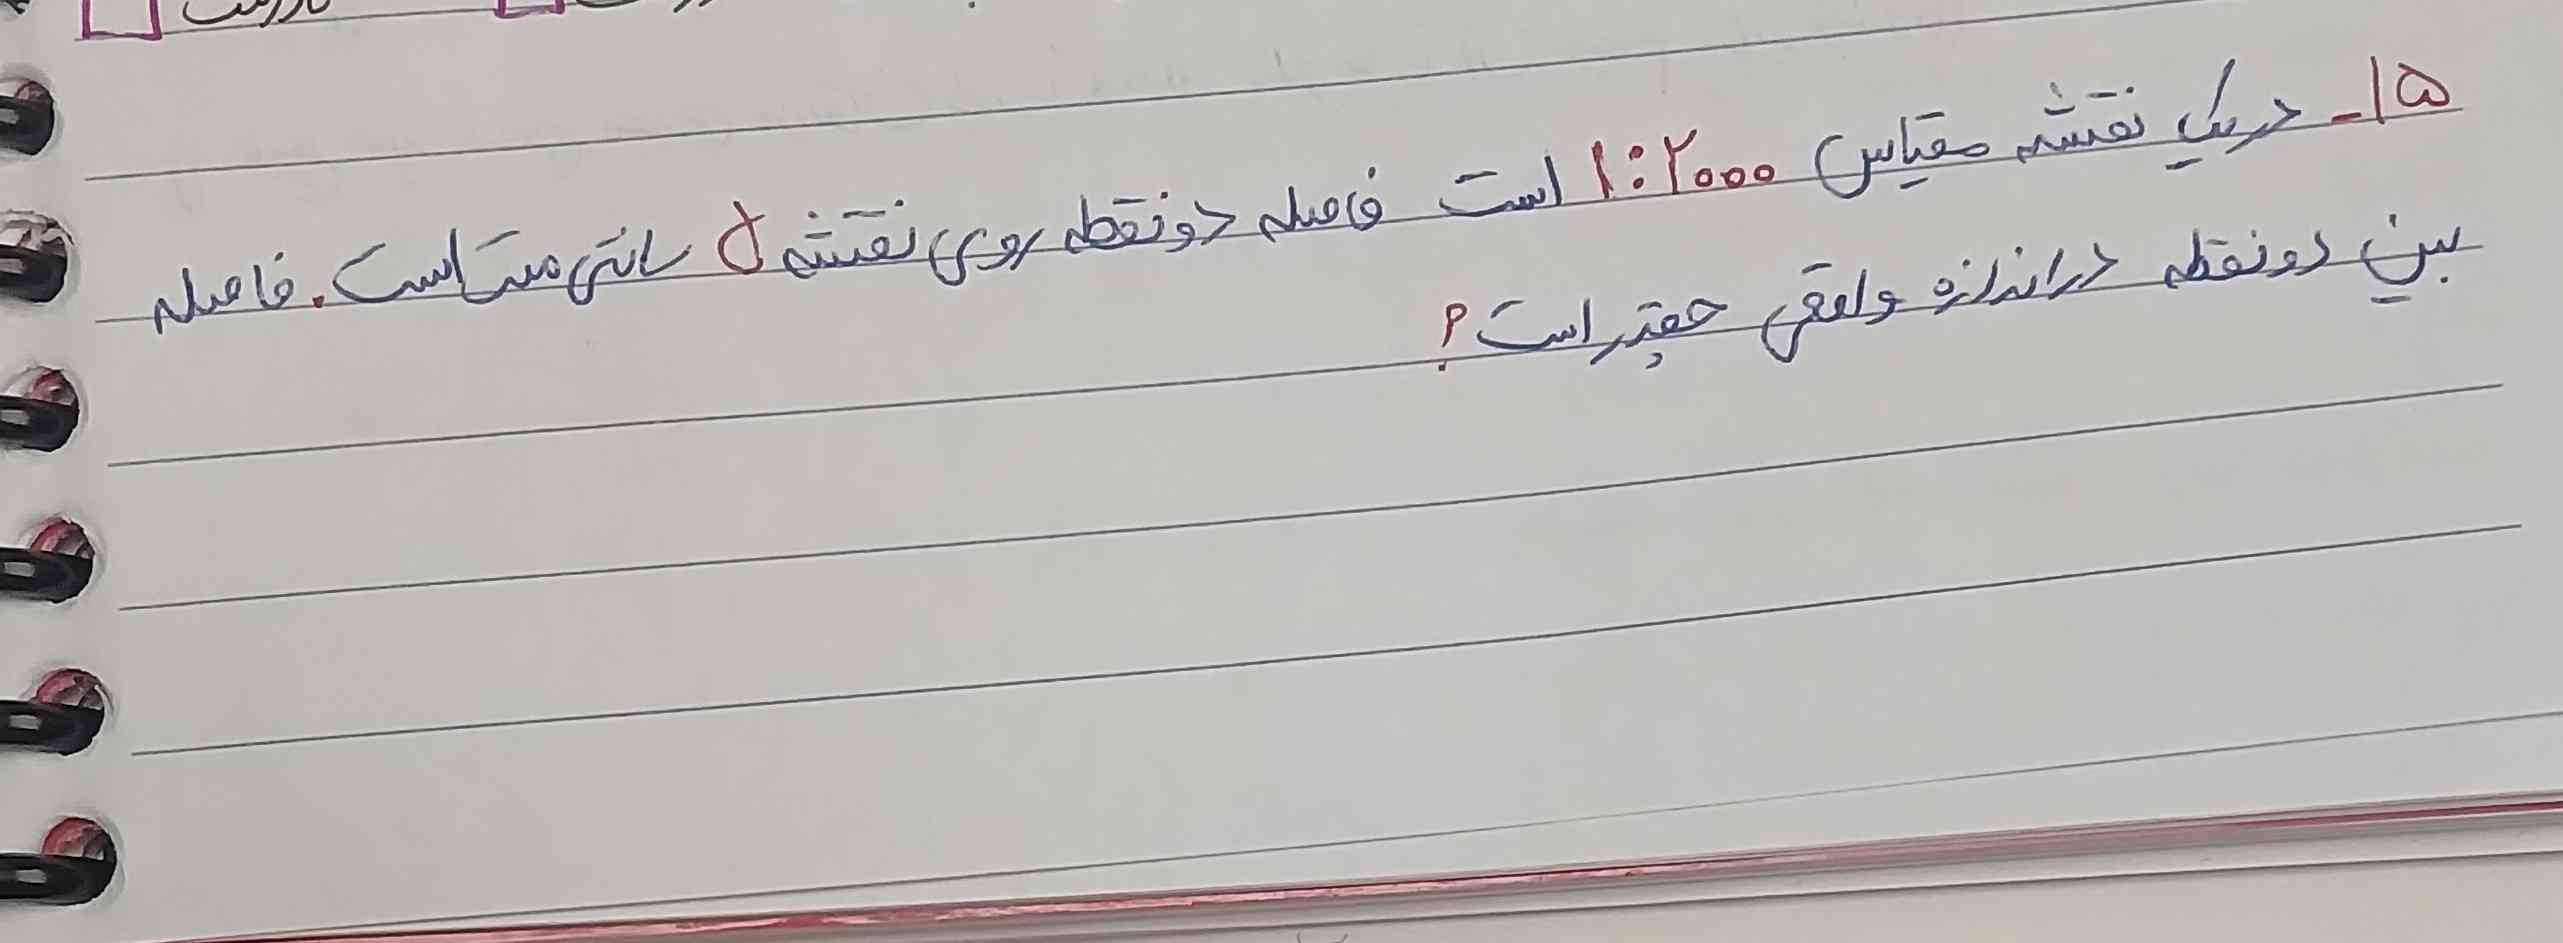 ۱۵- در یک نقشه مقیاس ۱:۲۰۰۰ است فاصله دو نقطه روی نقشه ۵ سانتی متر است. فاصله
بین دو نقطه در اندازه واقعی چقدر است؟